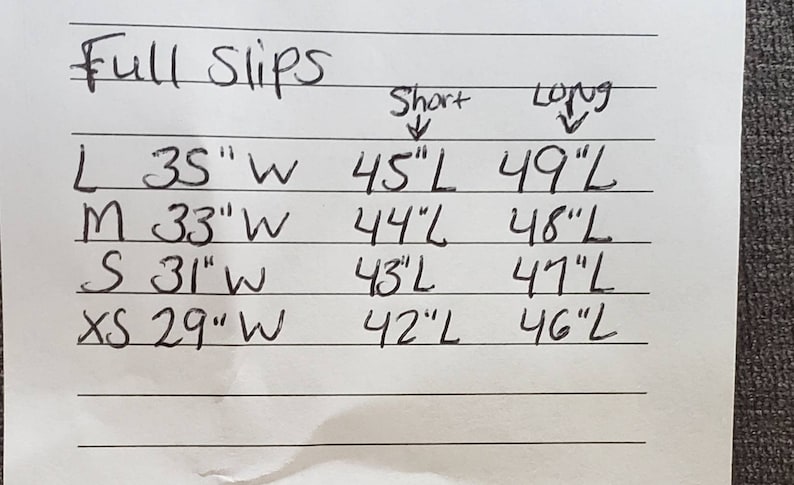 Full Slips
Short Long
L 35" W 45"L 49"L
M 33" W 44"L 48"L
S 31" W 43"L 47"L
XS 29" W 42"L 46"L